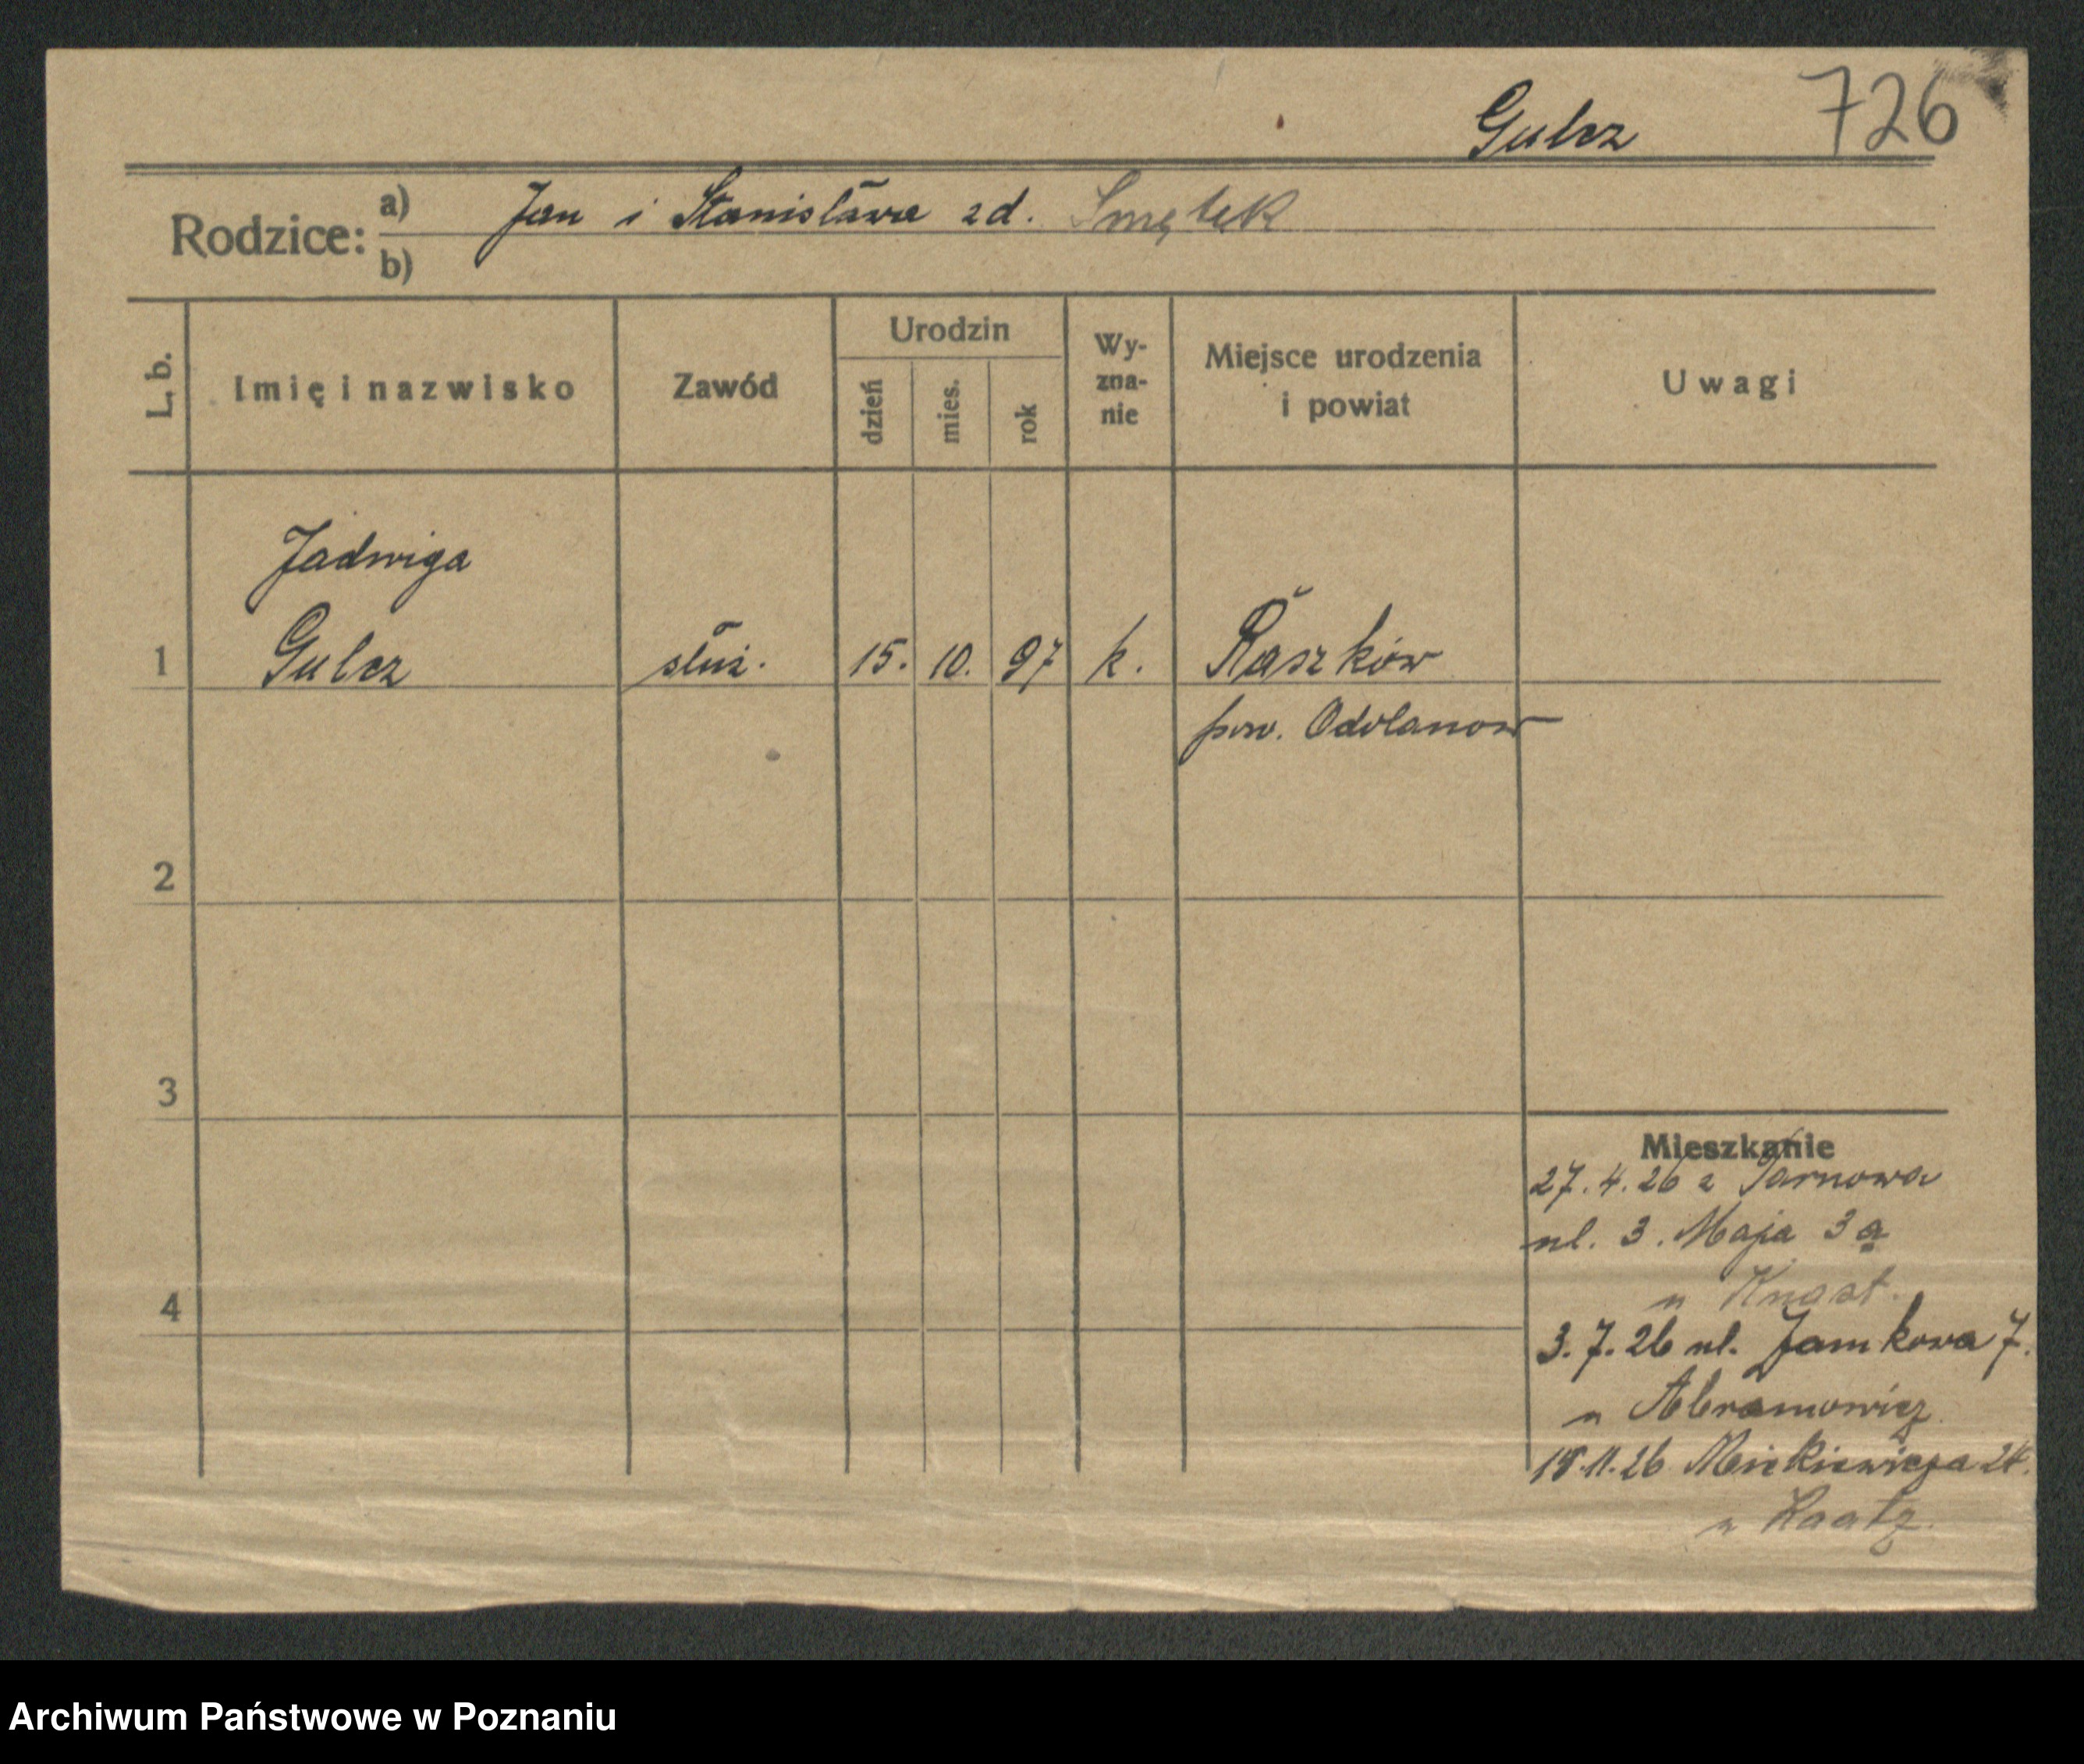 Gulcz 726
Rodzice: a) Jan i Stanisława zd. Smętek
b)
L. b. Imię i nazwisko Zawód Urodzin dzień mies. rok Wy-zna-nie Miejsce urodzenia i powiat Uwagi
Jadwiga
1 Gulcz służ. 15. 10. 97 k. Raszków
pow. Odolanow
2
3
Mieszkanie
27.4.26 z Tarnowa
ul. 3. Maja 3a
u Knast.
4
3.7.26 ul. Zamkowa 7.
u Abramowicz
18.11.26 Mickiewicza 24.
u Kaatz.
Archiwum Państwowe w Poznaniu